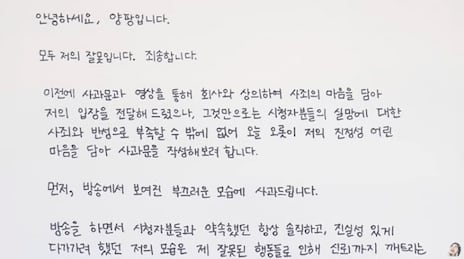 안녕하세요, 양팡입니다.
모두 저의 잘못입니다. 죄송합니다.
이전에 사과문과 영상을 통해 회사와 상의하여 사죄의 마음을 담아
저의 입장을 전달해 드렸으나, 그것만으로는 시청자분들의 실망에 대한
사죄와 반성으로 부족할 수 밖에 없어 오늘 오롯이 저의 진정성 어린
마음을 담아 사과문을 작성해보려 합니다.
먼저, 방송에서 보여진 부끄러운 모습에 사과드립니다.
방송을 하면서 시청자분들과 약속했던 항상 솔직하고, 진실성 있게
다가가려 했던 저의 모습은 제 잘못된 행동들로 인해 신뢰까지 깨트리는